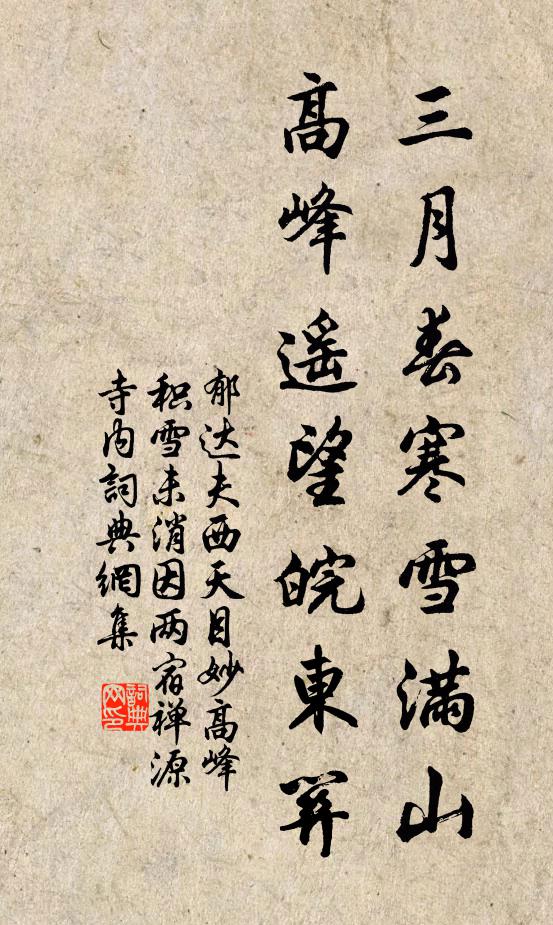 三月春寒雪滿山
高峰遥望皖東關
郁达夫西天目妙高峰
积雪未消因两宿禅源
寺内詞典網集
詞典网印